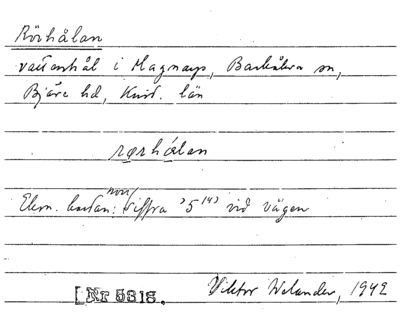 Rörhålan
vattenhål i Magnarp, Barkåkra sn,
Bjäre hd, Krist. län
rørhålan
Ekon. kartan: norr siffra "5 14" vid vägen
[Nr 5318.
Viktor Welander, 1942